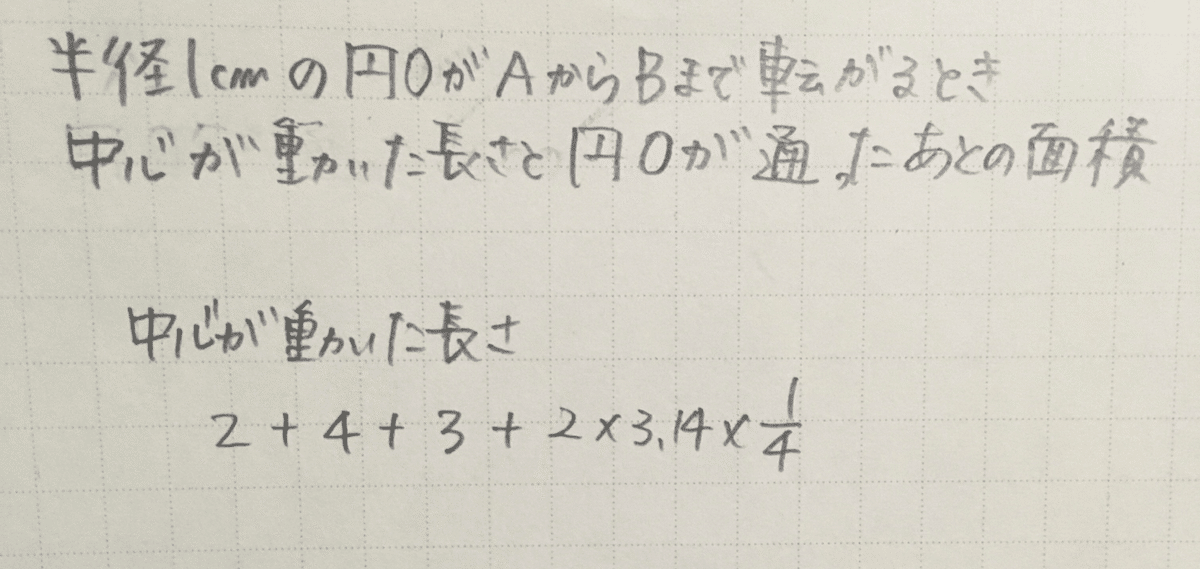 半径1cmの円OがAからBまで転がるとき
中心が動いた長さと円Oが通ったあとの面積
中心が動いた長さ
2+4+3+2×3.14×1/4